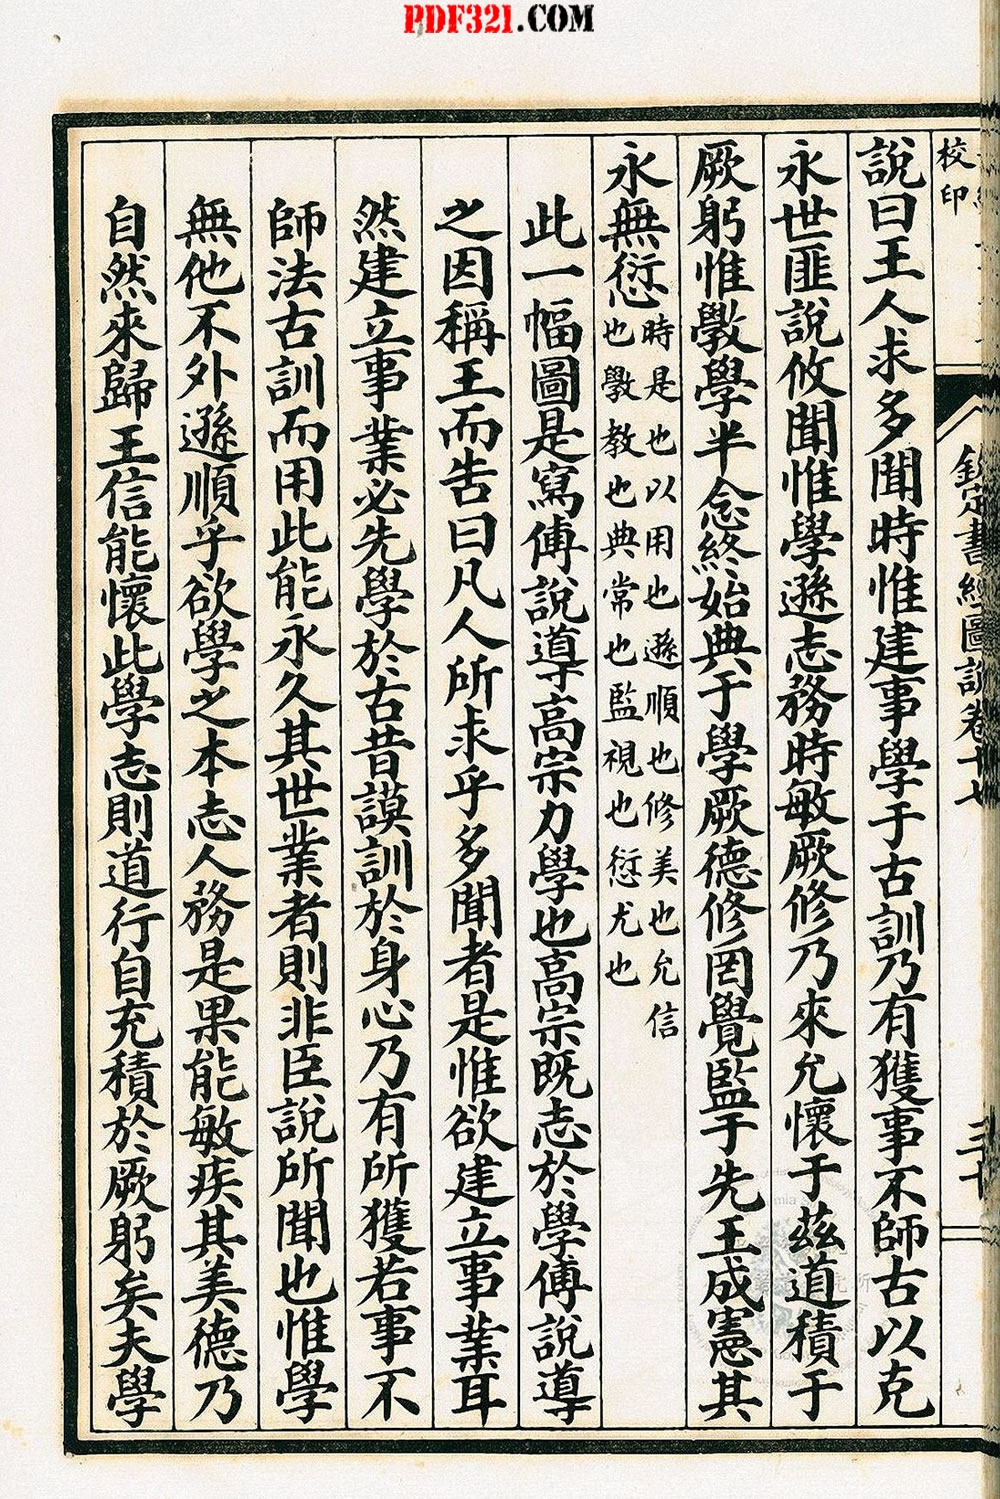 PDF321.COM
校印
欽定書經圖說卷十七
三十
說曰王人求多聞時惟建事學于古訓乃有獲事不師古以克
永世匪說攸聞惟學遜志務時敏厥修乃來允懷于茲道積于
厥躬惟斅學半念終始典于學厥德修罔覺監于先王成憲其
永無愆時是也以用也遜順也修美也允信
也斅教也典常也監視也愆尤也
此一幅圖是寫傅說導高宗力學也高宗既志於學傅說導
之因稱王而告曰凡人所求乎多聞者是惟欲建立事業耳
然建立事業必先學於古昔謨訓於身心乃有所獲若事不
師法古訓而用此能永久其世業者則非臣說所聞也惟學
無他不外遜順乎欲學之本志人務是果能敏疾其美德乃
自然來歸王信能懷此學志則道行自充積於厥躬矣夫學